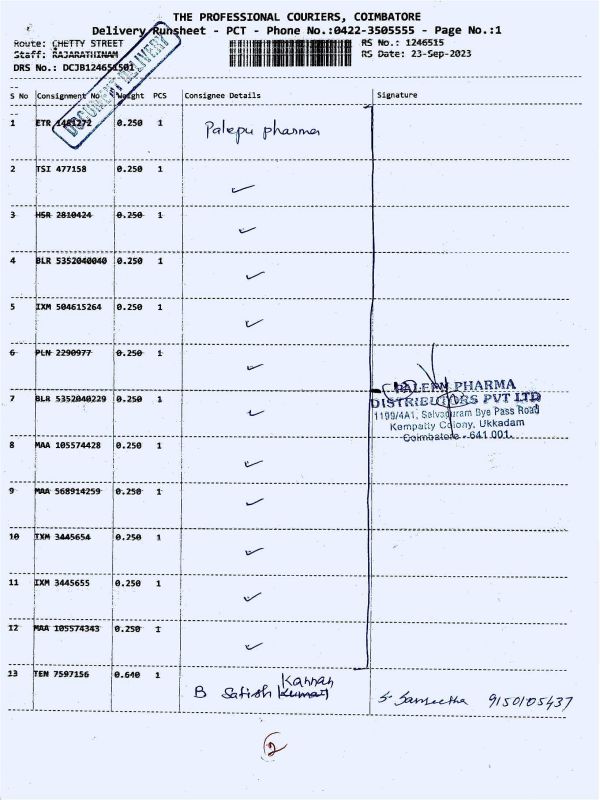 THE PROFESSIONAL COURIERS, COIMBATORE
Delivery Runsheet - PCT - Phone No.:0422-3505555 - Page No.:1
Route: CHETTY STREET RS No.: 1246515
Staff: RAJARATHINAM RS Date: 23-Sep-2023
DRS No.: DCJB124651501
DOCUMENT DELIVERY
S No Consignment No Weight PCS Consignee Details Signature
1 ETR 1481272 0.250 1 Palepu pharma
2 TSI 477158 0.250 1
3 HSR 2810424 0.250 1
4 BLR 5352040040 0.250 1
5 IXM 504615264 0.250 1
6 PLN 2290977 0.250 1
PALEPU PHARMA
DISTRIBUTORS PVT LTD
7 BLR 5352040229 0.250 1
1199/4A1, Selvapuram Bye Pass Road
Kempatty Colony, Ukkadam
Coimbatore - 641 001.
8 MAA 105574428 0.250 1
9 MAA 568914259 0.250 1
10 IXM 3445654 0.250 1
11 IXM 3445655 0.250 1
12 MAA 105574343 0.250 1
13 TEN 7597156 0.640 1 Kannan
B Satish Kumar S. Sangeetha 9150105437
2